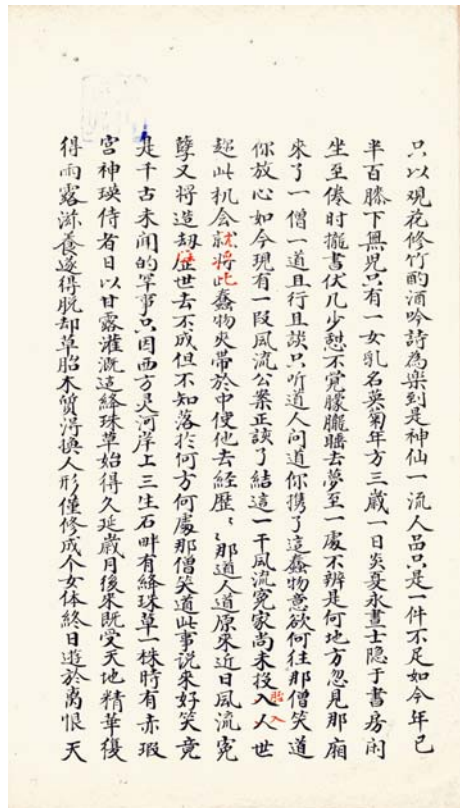 只以观花修竹酌酒吟詩為樂到是神仙一流人品只是一件不足如今年已
半百膝下無児只有一女乳名英菊年方三歲一日炎夏永晝士隐于書房闲
坐至倦时攏書伏几少憇不覺朦朧睡去夢至一處不辨是何地方忽見那廂
來了一僧一道且行且談只听道人问道你携了這蠢物意欲何往那僧笑道
你放心如今现有一段風流公案正談了結這一干風流冤家尚未投胎入人世
趂此机会就將此蠢物夾帶於中使他去経歷〻那道人道原來近日風流冤
孽又将造刼歷世去不成但不知落於何方何處那僧笑道此事説來好笑竟
是千古未闻的罕事只因西方灵河岸上三生石畔有絳珠草一株時有赤瑕
宮神瑛侍者日以甘露灌溉這絳珠草始得久延歲月後來既受天地精華復
得雨露滋養遂得脱却草胎木質得换人形僅修成个女体終日遊於离恨天